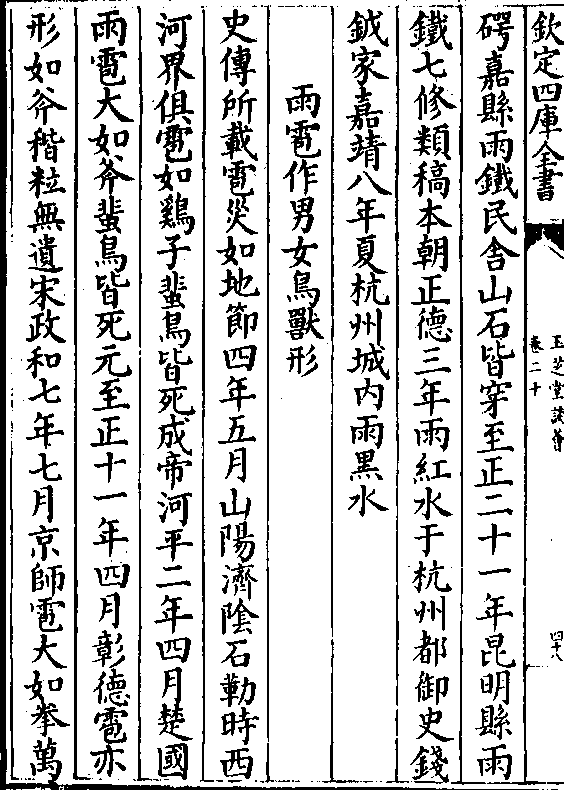 欽定四庫全書
玉芝堂談薈
卷二十
四十八
碍嘉縣雨鐵民舎山石皆穿至正二十一年昆明縣雨
鐵七修類稿本朝正德三年雨紅水于杭州都御史錢
鉞家嘉靖八年夏杭州城内雨黒水
雨雹作男女鳥獸形
史傳所載雹災如地節四年五月山陽濟隂石勒時西
河界俱雹如鷄子蜚鳥皆死成帝河平二年四月楚國
雨雹大如斧蜚鳥皆死元至正十一年四月彰德雹亦
形如斧稭粒無遺宋政和七年七月京師雹大如拳萬